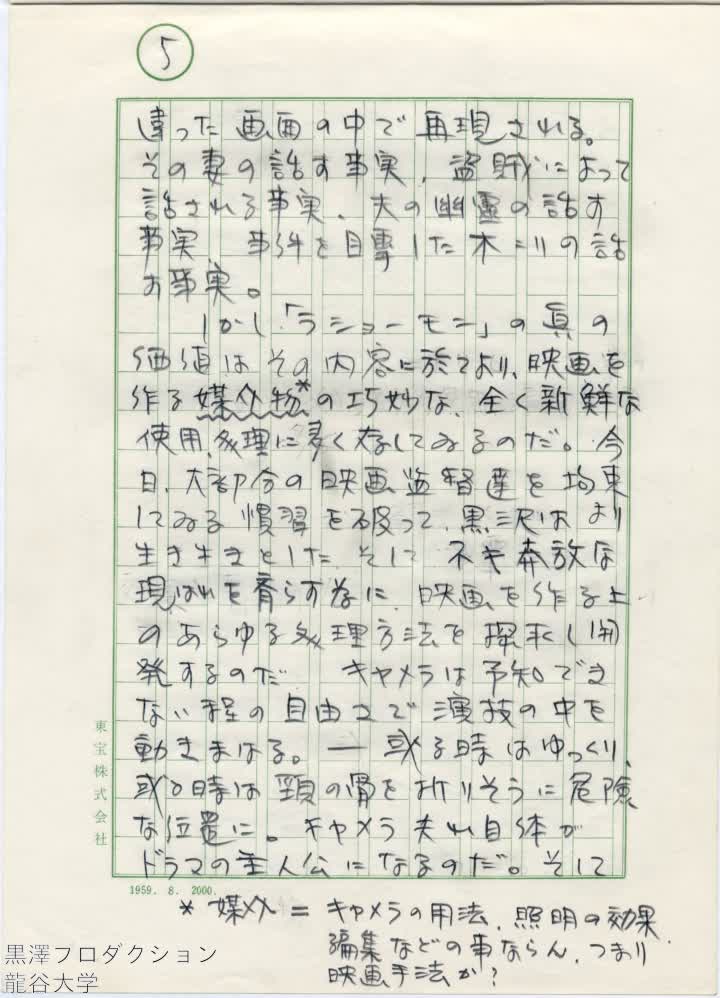 5
違った画面の中で再現される。
その妻の話す事実、盗賊によって
話される事実、夫の幽靈の話す
事実 事件を目撃した木こりの話
す事実。
しかし「ラショーモン」の真の
価値はその内容に於てより、映画を
作る媒介物*の巧妙な、全く新鮮な
使用、処理に多く存してゐるのだ。今
日、大部分の映画監督達を拘束
してゐる慣習を破って、黒沢はより
生き生きとした、そして 不キ奔放な
現はれを齎らす為に、映画を作る上
のあらゆる処理方法を探求し開
発するのだ キャメラは予知でき
ない程の自由さで演技の中を
動きまはる。— 或る時はゆっくり、
或る時は頸の骨を折りそうに危険
な位置に。キャメラ夫れ自体が
ドラマの主人公になるのだ。そして
東宝株式会社
1959. 8. 2000.
* 媒介 = キャメラの用法、照明の効果
編集などの事ならん、つまり
映画手法か?
黒澤プロダクション
龍谷大学